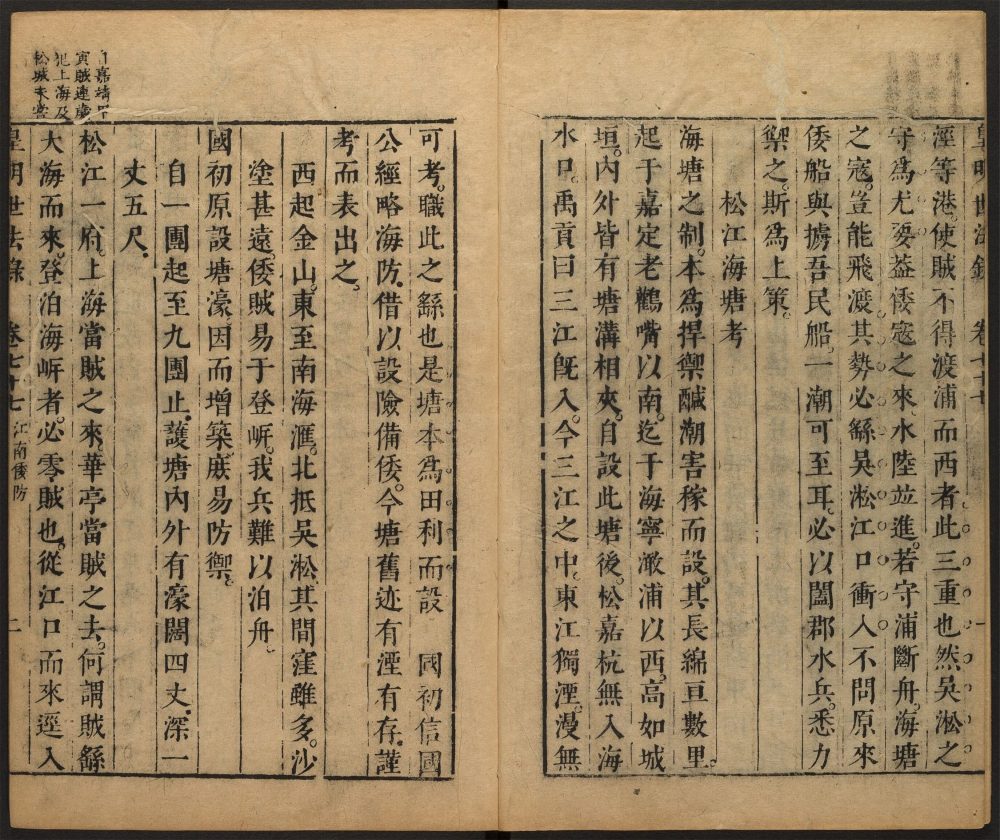 皇明世法錄　卷七十七　一
涇等港。使賊不得渡浦而西者。此三重也。然吳淞之
守爲尤要。葢倭寇之來。水陸並進。若守浦斷舟。海塘
之寇。豈能飛渡。其勢必繇吳淞江口衝入。不問原來
倭船與擄吾民船。一潮可至耳。必以闔郡水兵。悉力
禦之。斯爲上策。
松江海塘考
海塘之制。本爲捍禦鹹潮害稼而設。其長綿亘數里。
起于嘉定老鸛嘴以南。迄于海寧澉浦以西。高如城
垣。內外皆有塘溝相夾。自設此塘後。松嘉杭無入海
水口。禹貢曰三江旣入。今三江之中。東江獨湮。漫無
可考。職此之繇也。是塘本爲田利而設　國初信國
公經略海防。借以設險備倭。今塘舊迹有湮有存。謹
考而表出之。
西起金山。東至南海滙。北抵吳淞。其間窪雖多。沙
塗甚遠。倭賊易于登㟁。我兵難以泊舟。
國初原設塘濠。因而增築。庶易防禦。
自一團起至九團止。護塘內外有濠闊四丈。深一
丈五尺。
松江一府。上海當賊之來。華亭當賊之去。何謂賊繇
大海而來。登泊海㟁者。必零賊也。從江口而來逕入
皇明世法錄　卷七十七　江南倭防　二
嘉靖甲
寅賊連䑸
犯上海及
松城未嘗